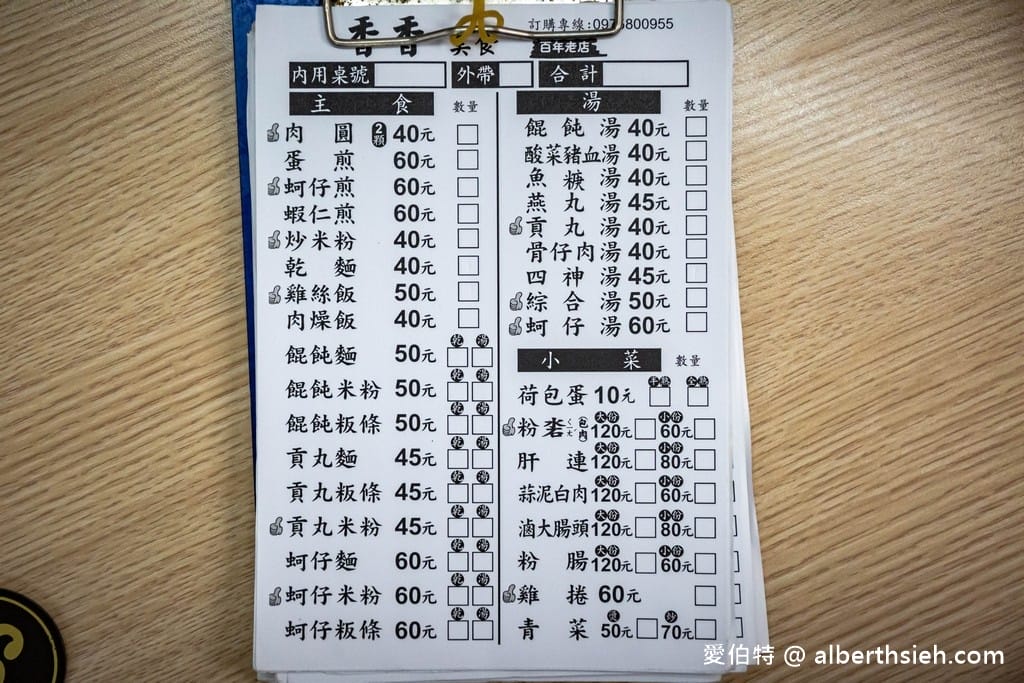 香香 美食 百年老店
訂購專線:0975800955
內用桌號 外帶 合計
主食 數量
肉圓 2顆 40元
蛋煎 60元
蚵仔煎 60元
蝦仁煎 60元
炒米粉 40元
乾麵 40元
雞絲飯 50元
肉燥飯 40元
乾 湯
餛飩麵 50元
乾 湯
餛飩米粉 50元
乾 湯
餛飩粄條 50元
乾 湯
貢丸麵 45元
乾 湯
貢丸粄條 45元
乾 湯
貢丸米粉 45元
乾 湯
蚵仔麵 60元
乾 湯
蚵仔米粉 60元
乾 湯
蚵仔粄條 60元
湯 數量
餛飩湯 40元
酸菜豬血湯 40元
魚焿湯 40元
燕丸湯 45元
貢丸湯 40元
骨仔肉湯 40元
四神湯 45元
綜合湯 50元
蚵仔湯 60元
小菜 數量
半熟 全熟
荷包蛋 10元
大份 小份
粉 ㄑㄧㄝˊ 包肉 120元 60元
大份 小份
肝連 120元 80元
大份 小份
蒜泥白肉 120元 60元
大份 小份
滷大腸頭 120元 80元
大份 小份
粉腸 120元 60元
雞捲 60元
燙 炒
青菜 50元 70元
愛伯特 @ alberthsieh.com